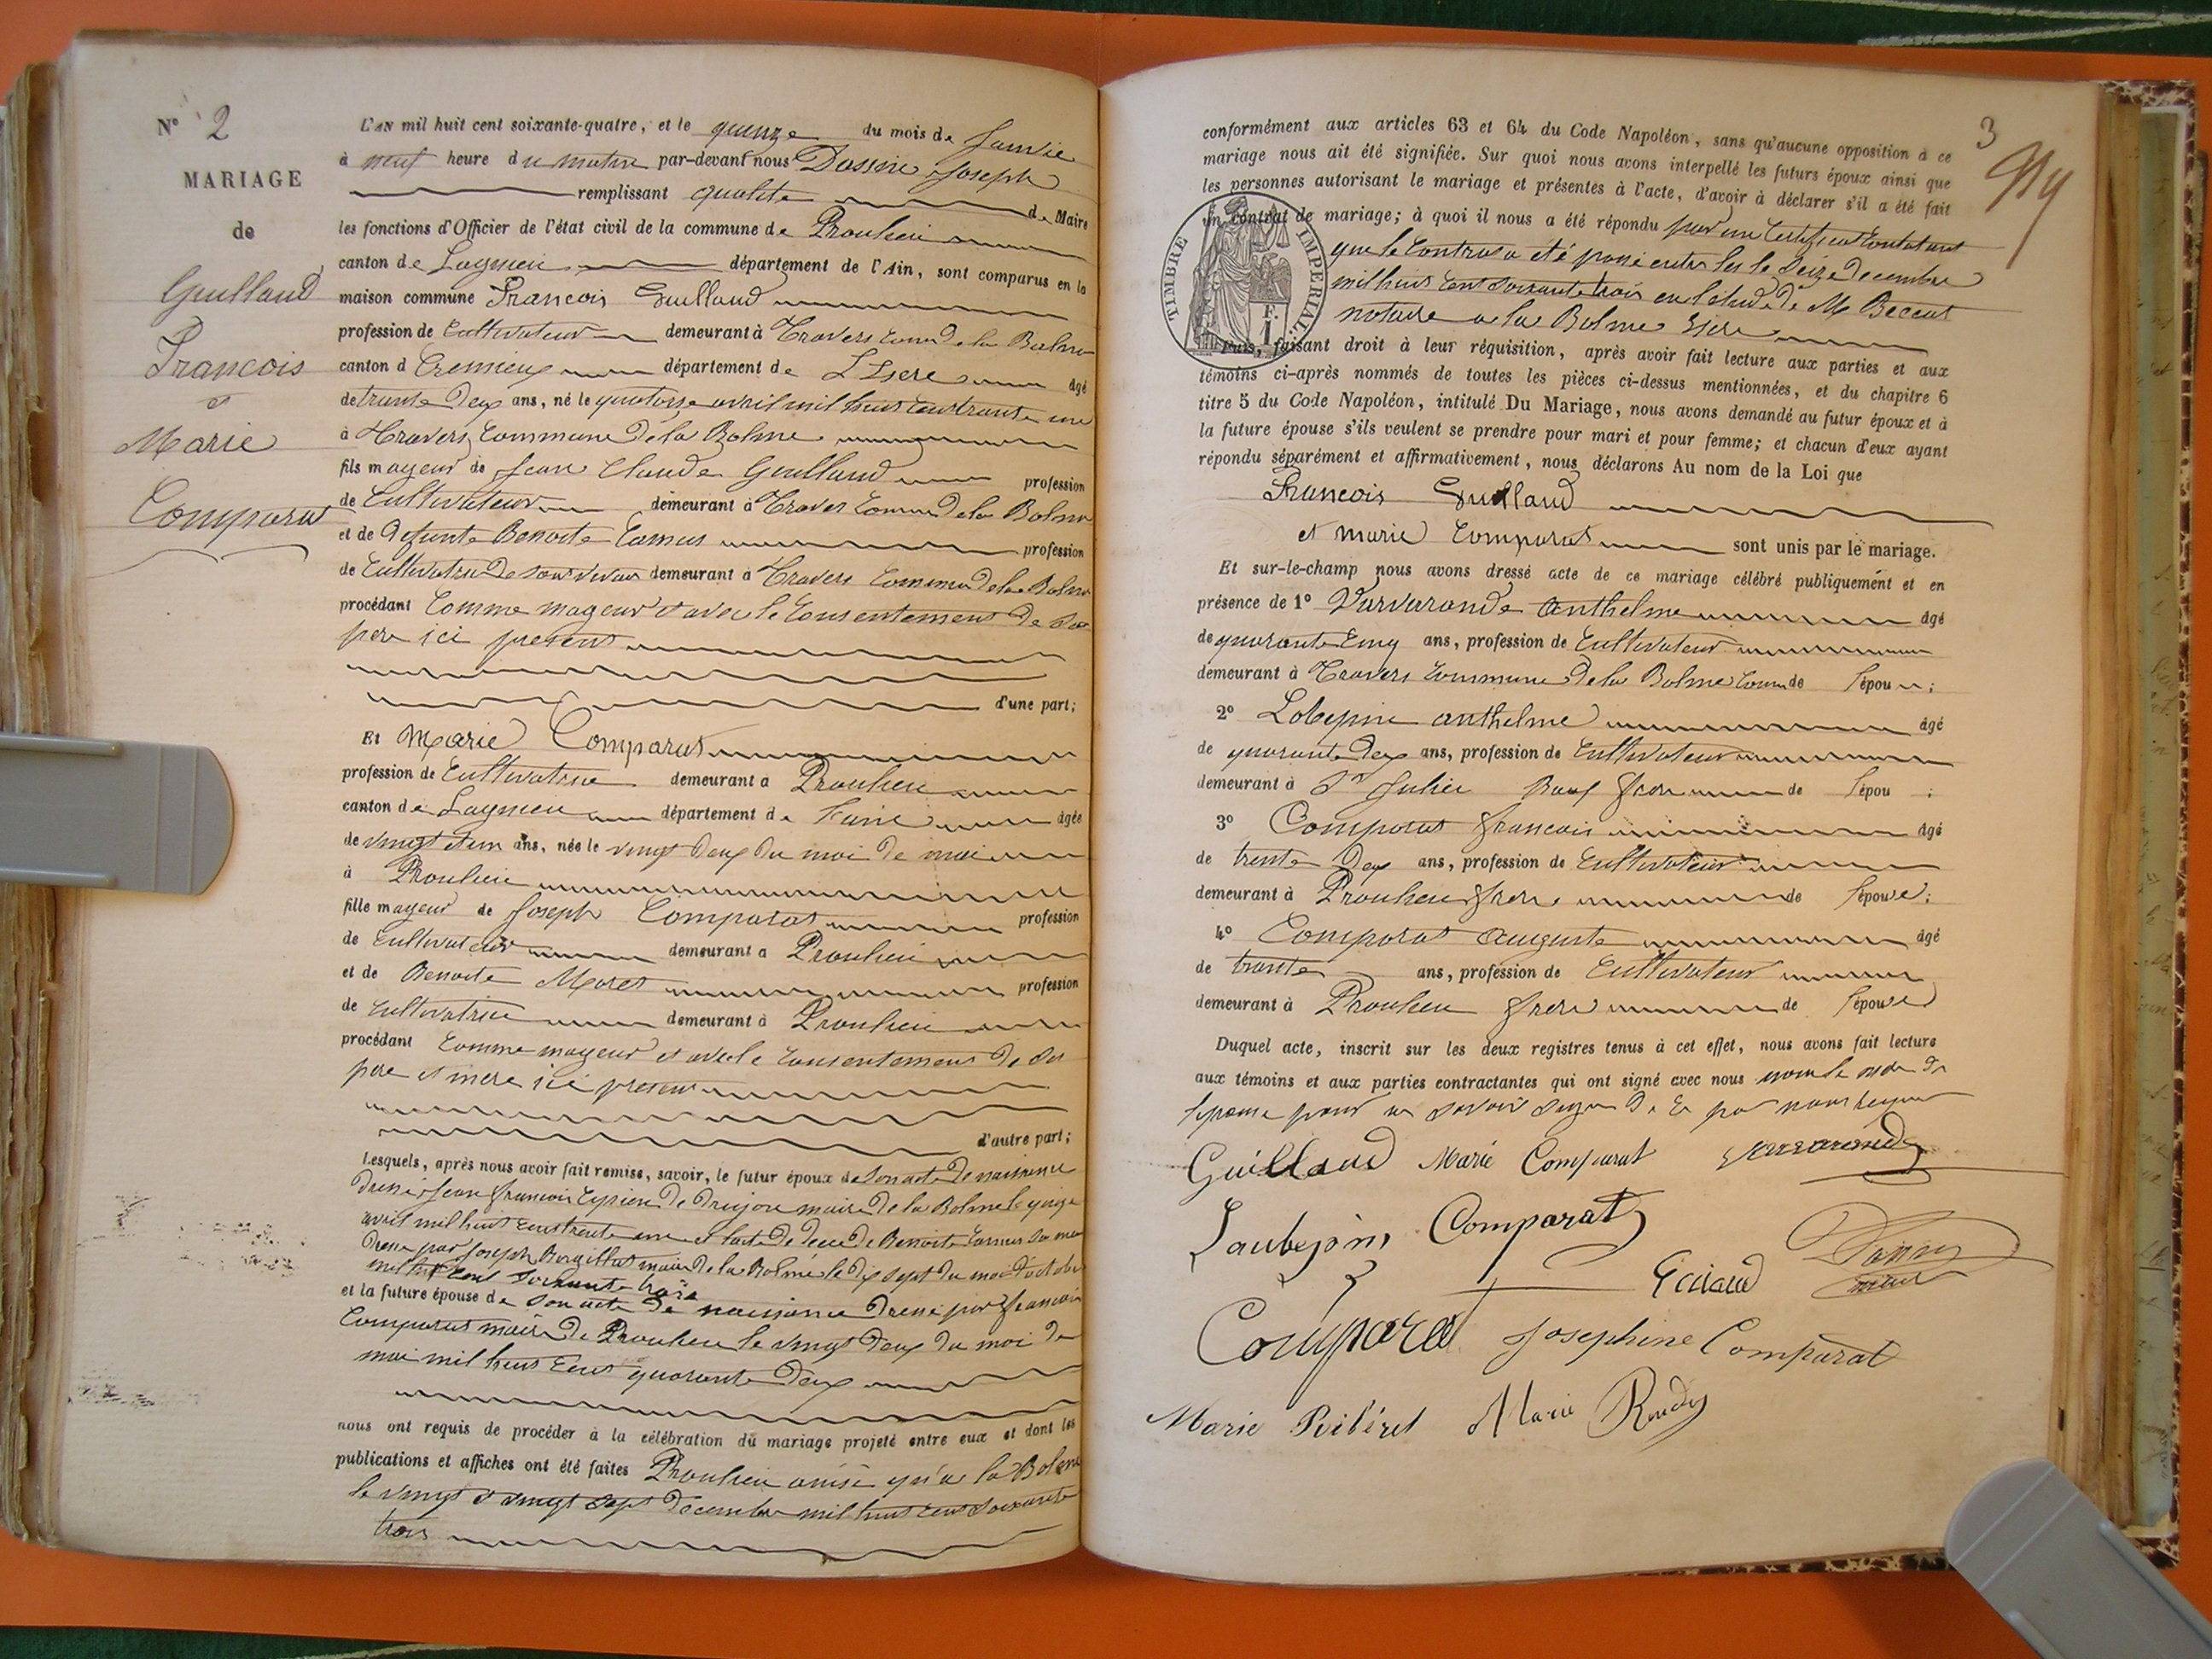 N° 2
MARIAGE
de
Guilland
Francois
et
Marie
Comparat
L'AN mil huit cent soixante-quatre, et le quinze du mois de Janvie
à neuf heure du matin par-devant nous Joseph
remplissant qualite de Maire
les fonctions d'Officier de l'état civil de la commune de Proulieu
canton de Lagnieu département de l'Ain, sont comparus en la
maison commune Francois Guilland
profession de Cultivateur demeurant à Travers Comm de la Balme
canton d Cremieux département de L'Isere âgé
de trante deux ans, né le quatorze avril mil huit cent trante une
à Travers Commune de la Balme
fils mageur de Jean Claude Guilland profession
de Cultivateur demeurant à Traver Comm de la Balme
et de defunte Benoite Camus profession
de Cultivatrice de son vivan demeurant à Travers Commu de la Balme
procédant Comme mageur et avec le Consentement de son
pere ici present
d'une part;
Et Marie Comparat
profession de Cultivatrice demeurant a Proulieu
canton de Lagnieu département de âgée
de vingt et un ans, née le vingt deux du moi de mai
à Proulieu
fille mageur de Joseph Comparat profession
de Cultivateur demeurant a Proulieu
et de Benoite Moret profession
de Cultivatrice demeurant à Proulieu
procédant Comme mageur et avec le Consentement de ses
pere et mere ici present
d'autre part;
Lesquels, après nous avoir fait remise, savoir, le futur époux de Son acte de naissance
Jean francois maire de la Balme le
avril mil huit cent trente une et l'acte de de Benoite Camus Sa mere
par Joseph maire de la Balme le dix sept du moi d'octobre
mil huit cent soixante trois
et la future épouse de Son acte de naissance par francois
Comparat maire de Proulieu le vingt deux du moi de
mai mil huit Cent quarente deux
nous ont requis de procéder à la célébration du mariage projeté entre eux et dont les
publications et affiches ont été faites Proulieu qu'a la Balme
le vingt et vingt sept Decembre mil huit cent soixante
trois
3
conformément aux articles 63 et 64 du Code Napoléon, sans qu'aucune opposition à ce
mariage nous ait été signifiée. Sur quoi nous avons interpellé les futurs époux ainsi que
les personnes autorisant le mariage et présentes à l'acte, d'avoir à déclarer s'il a été fait
un contrat de mariage; à quoi il nous a été répondu par un Certificat
TIMBRE IMPERIAL.
F. 1
que le Contrat a été passé le Seize decembre
mil huit Cent soixante trois en l'étude de M
notaire a la Balme Isere
Puis, faisant droit à leur réquisition, après avoir fait lecture aux parties et aux
témoins ci-après nommés de toutes les pièces ci-dessus mentionnées, et du chapitre 6
titre 5 du Code Napoléon, intitulé Du Mariage, nous avons demandé au futur époux et à
la future épouse s'ils veulent se prendre pour mari et pour femme; et chacun d'eux ayant
répondu séparément et affirmativement, nous déclarons Au nom de la Loi que
Francois Guilland
et marie Comparat sont unis par le mariage.
Et sur-le-champ nous avons dressé acte de ce mariage célébré publiquement et en
présence de 1° Varvarande Anthelme âgé
de quarante Cinq ans, profession de Cultivateur
demeurant à Travers Commune de la Balme de l'épou ;
2° anthelme âgé
de quarante deux ans, profession de Cultivateur
demeurant à St Julien de l'épou ;
3° Comparat francois âgé
de trente deux ans, profession de Cultivateur
demeurant à Proulieu frere de l'épouse;
4° Comparat Auguste âgé
de trante ans, profession de Cultivateur
demeurant à Proulieu frere de l'épouse
Duquel acte, inscrit sur les deux registres tenus à cet effet, nous avons fait lecture
aux témoins et aux parties contractantes qui ont signé avec nous
Guilland Marie Comparat Varvarande
Comparat
Comparat Josephine Comparat
Marie Marie